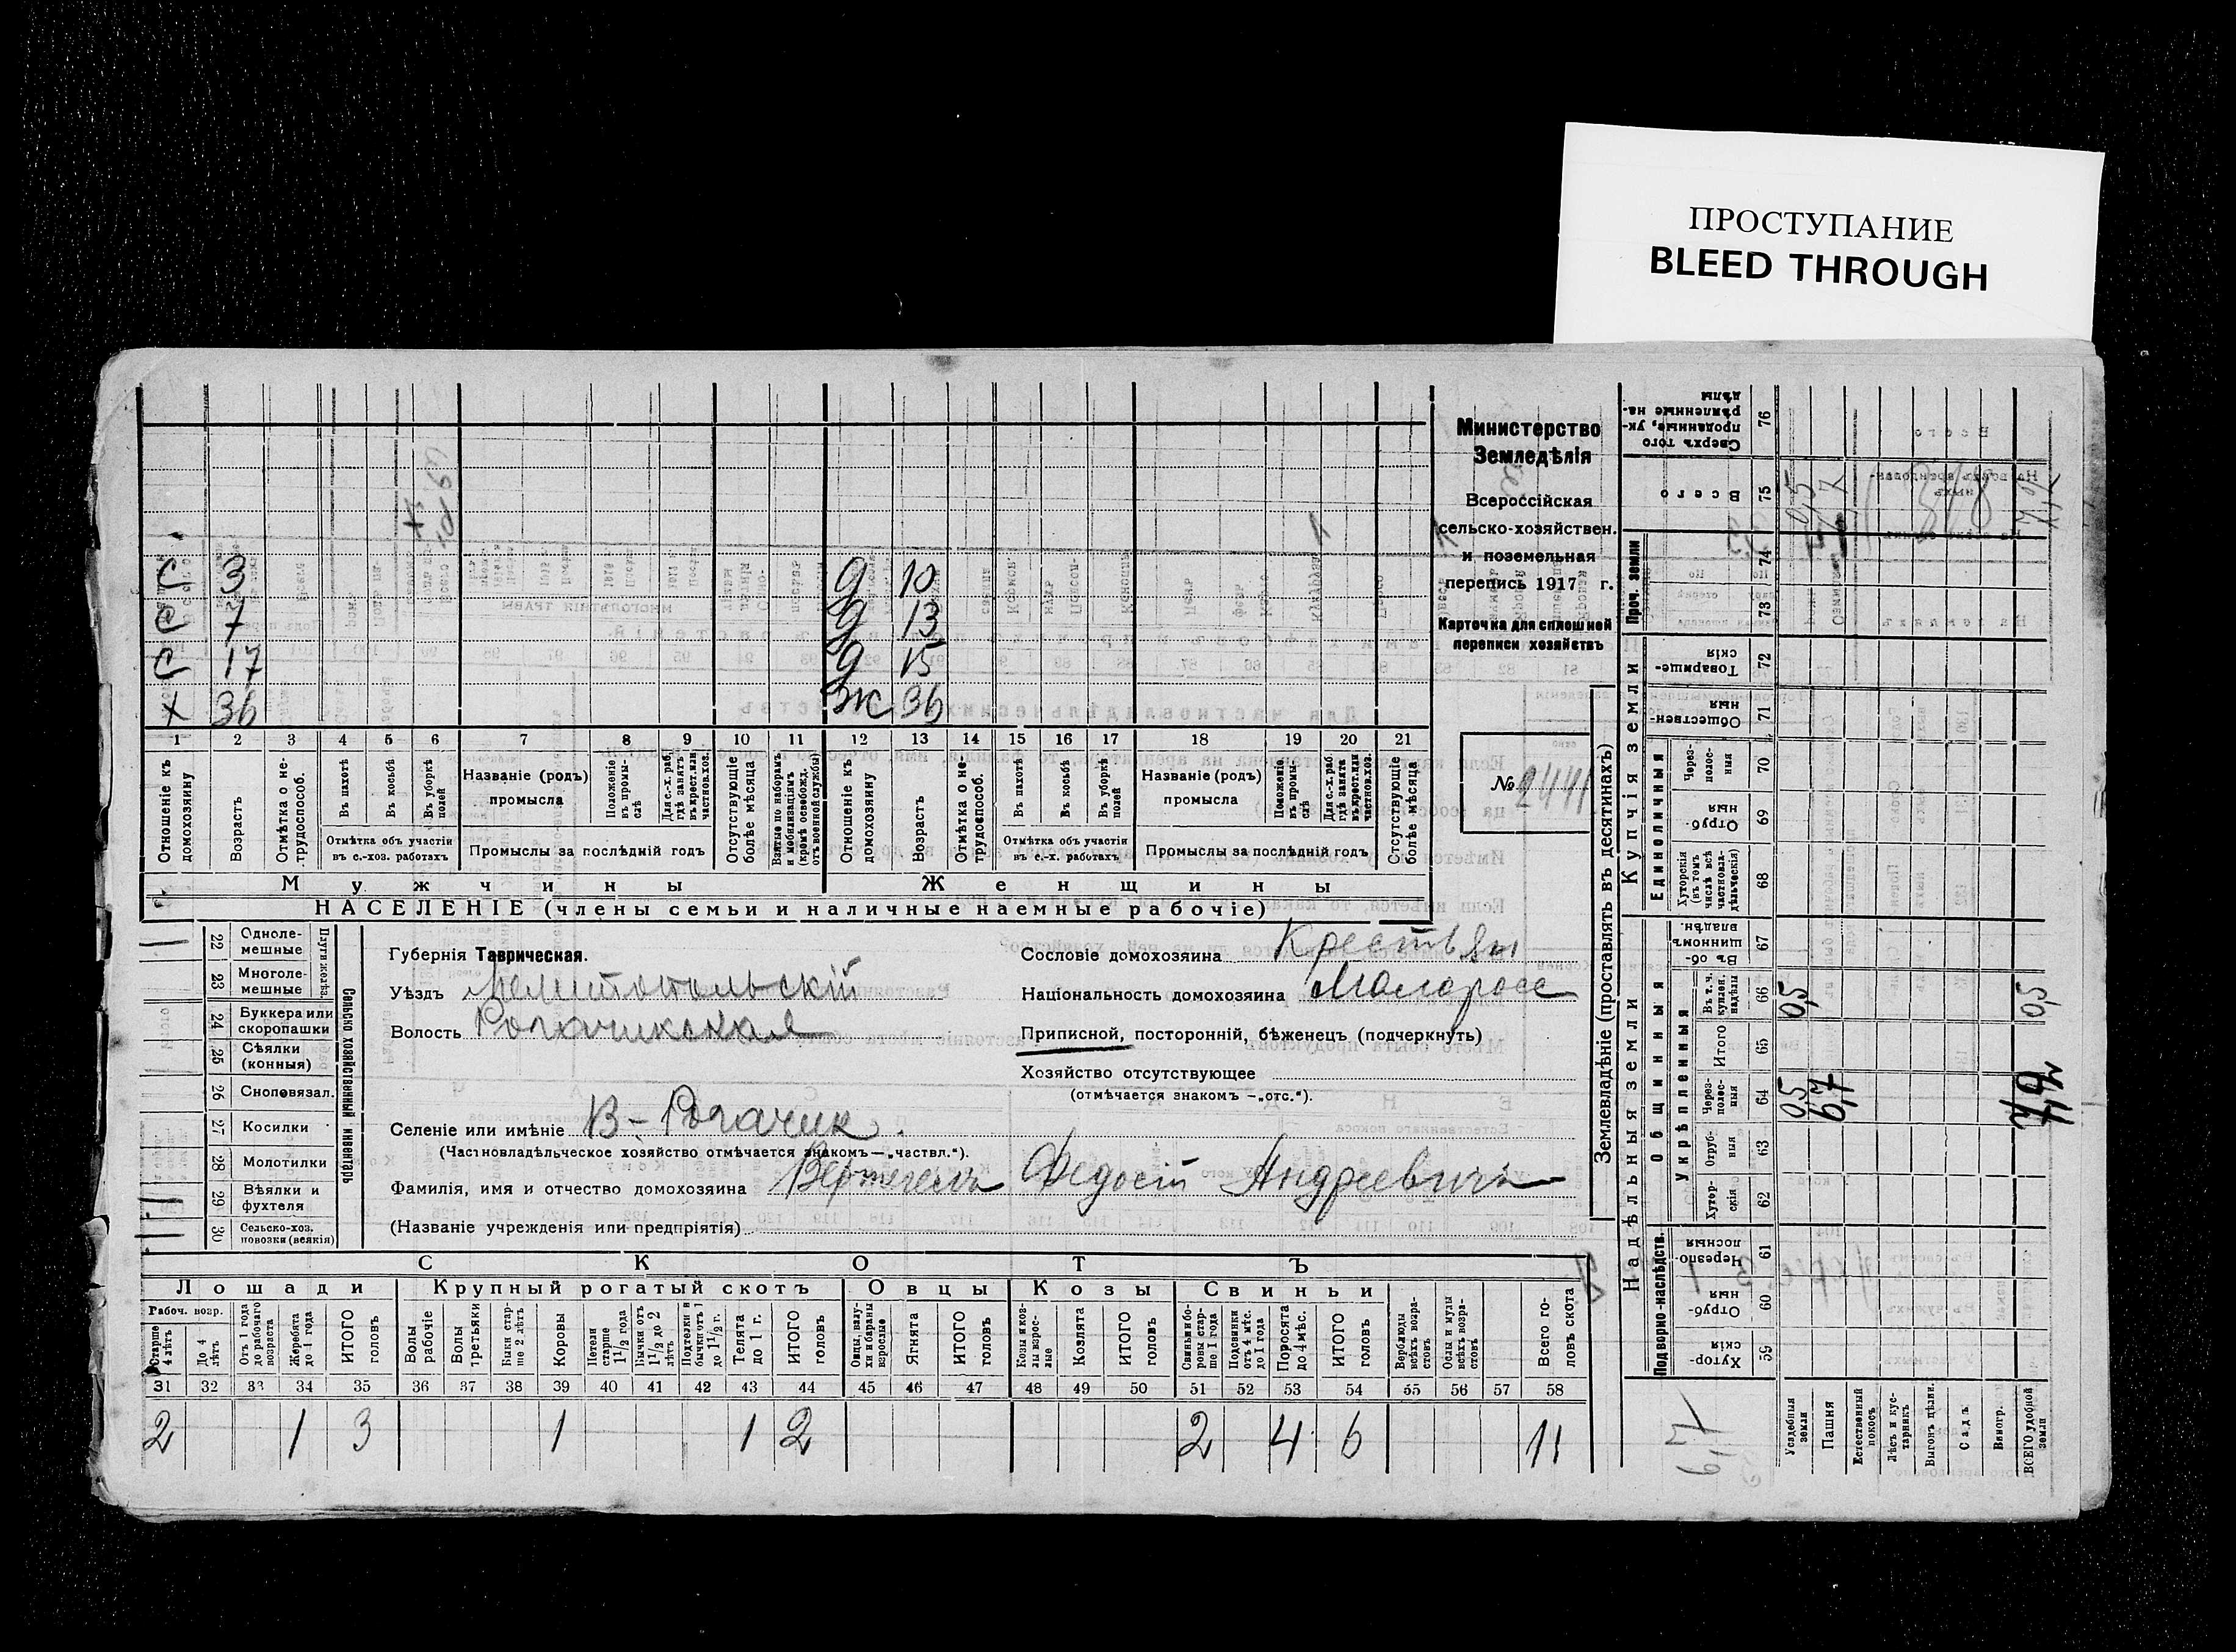 ПРОСТУПАНИЕ
BLEED THROUGH
Министерство
Земледѣлія
Всероссійская
сельско-хозяйствен.
и поземельная
перепись 1917 г.
Карточка для сплошной
переписи хозяйствъ
№ 2441
С 3 д 10
С 7 д 13
С 17 д 15
х 36 ж 36
1 2 3 4 5 6 7 8 9 10 11 12 13 14 15 16 17 18 19 20 21
Отношеніе къ домохозяину
Возрастъ
Отмѣтка о нетрудоспособ.
Въ пахотѣ
Въ косьбѣ
Въ уборкѣ полей
Отмѣтка объ участіи въ с.-хоз. работахъ
Названіе (родъ) промысла
Положеніе въ промыслѣ
Для с.-х. раб. гдѣ занятъ въ крест. или частнов. хоз.
Промыслы за послѣдній годъ
Отсутствующіе болѣе мѣсяца
Взятые по наборамъ и мобилизаціямъ (кромѣ освобожд. отъ военной службы)
Отношеніе къ домохозяину
Возрастъ
Отмѣтка о нетрудоспособ.
Въ пахотѣ
Въ косьбѣ
Въ уборкѣ полей
Отмѣтка объ участіи въ с.-х. работахъ
Названіе (родъ) промысла
Положеніе въ промыслѣ
Для с.-х. раб. гдѣ занята въ крест. или частнов. хоз.
Промыслы за послѣдній годъ
Отсутствующіе болѣе мѣсяца
Мужчины Женщины
НАСЕЛЕНІЕ (члены семьи и наличные наемные рабочіе)
Сельско хозяйственный инвентарь
Плуги желѣз.
22 Одноле-мешные
23 Многоле-мешные
24 Буккера или скоропашки
25 Сѣялки (конныя)
26 Сноповязал.
27 Косилки
28 Молотилки
29 Вѣялки и фухтеля
30 Сельско-хоз. повозки (всякія)
Губернія Таврическая.
Уѣздъ Мелитопольскій
Волость Рогачикская
Сословіе домохозяина Крестьян
Національность домохозяина Малоросс
Приписной, посторонній, бѣженецъ (подчеркнуть)
Хозяйство отсутствующее
(отмѣчается знакомъ —„отс.“).
Селеніе или имѣніе В-Рогачик.
(Частновладѣльческое хозяйство отмѣчается знакомъ—„частвл.“).
Фамилія, имя и отчество домохозяина Вертегелъ Федосій Андреевичъ
(Названіе учрежденія или предпріятія)
СКОТЪ
Лошади Крупный рогатый скотъ Овцы Козы Свиньи
Рабоч. возр.
Старше 4 лѣтъ
До 4 лѣтъ
Отъ 1 года до рабочаго возраста
Жеребята до 1 года
ИТОГО головъ
Волы рабочіе
Волы третьяки
Быки старше 2 лѣтъ
Коровы
Нетели старше 1½ года
Бычки отъ 1½ до 2 лѣтъ
Подтелки и бычки отъ 1 до 1½ г.
Телята до 1 г.
ИТОГО головъ
Овцы, валухи и бараны взрослые
Ягнята
ИТОГО головъ
Козы и козлы взрослые
Козлята
ИТОГО головъ
Свиньи и боровы старше 1 года
Подсвинки отъ 4 мѣс. до 1 года
Поросята до 4 мѣс.
ИТОГО головъ
Верблюды всѣхъ возрастовъ
Ослы и мулы всѣхъ возрастовъ
Всего головъ скота
31 32 33 34 35 36 37 38 39 40 41 42 43 44 45 46 47 48 49 50 51 52 53 54 55 56 57 58
2 1 3 1 1 2 2 4 6 11
Землевладѣніе (проставлять въ десятинахъ)
Надѣльныя земли Купчія земли
Подворно-наслѣдств. Общинныя Единоличныя Проч. земли
Укрѣпленныя
59 Хуторскія
60 Отрубныя
61 Черезполосныя
62 Хуторскія
63 Отрубныя
64 Черезполосныя
65 Итого
66 Въ т. ч. куплен. надѣлы
67 Въ общинномъ владѣн.
68 Хуторскія (въ томъ числѣ всѣ частновладѣльческія)
69 Отрубныя
70 Черезполосныя
71 Общественныя
72 Товарищескія
73
74
75 Всего
76 Сверхъ того проданные, укрѣпленные надѣлы
Усадебныя земли 0,5 0,5 0,5
Пашня 6,7 6,7
Естественный покосъ
Лѣсъ и кустарникъ
Выгонъ цѣлин.
Садъ
Виногр.
ВСЕГО удобной земли 7,2 0,5 7,2